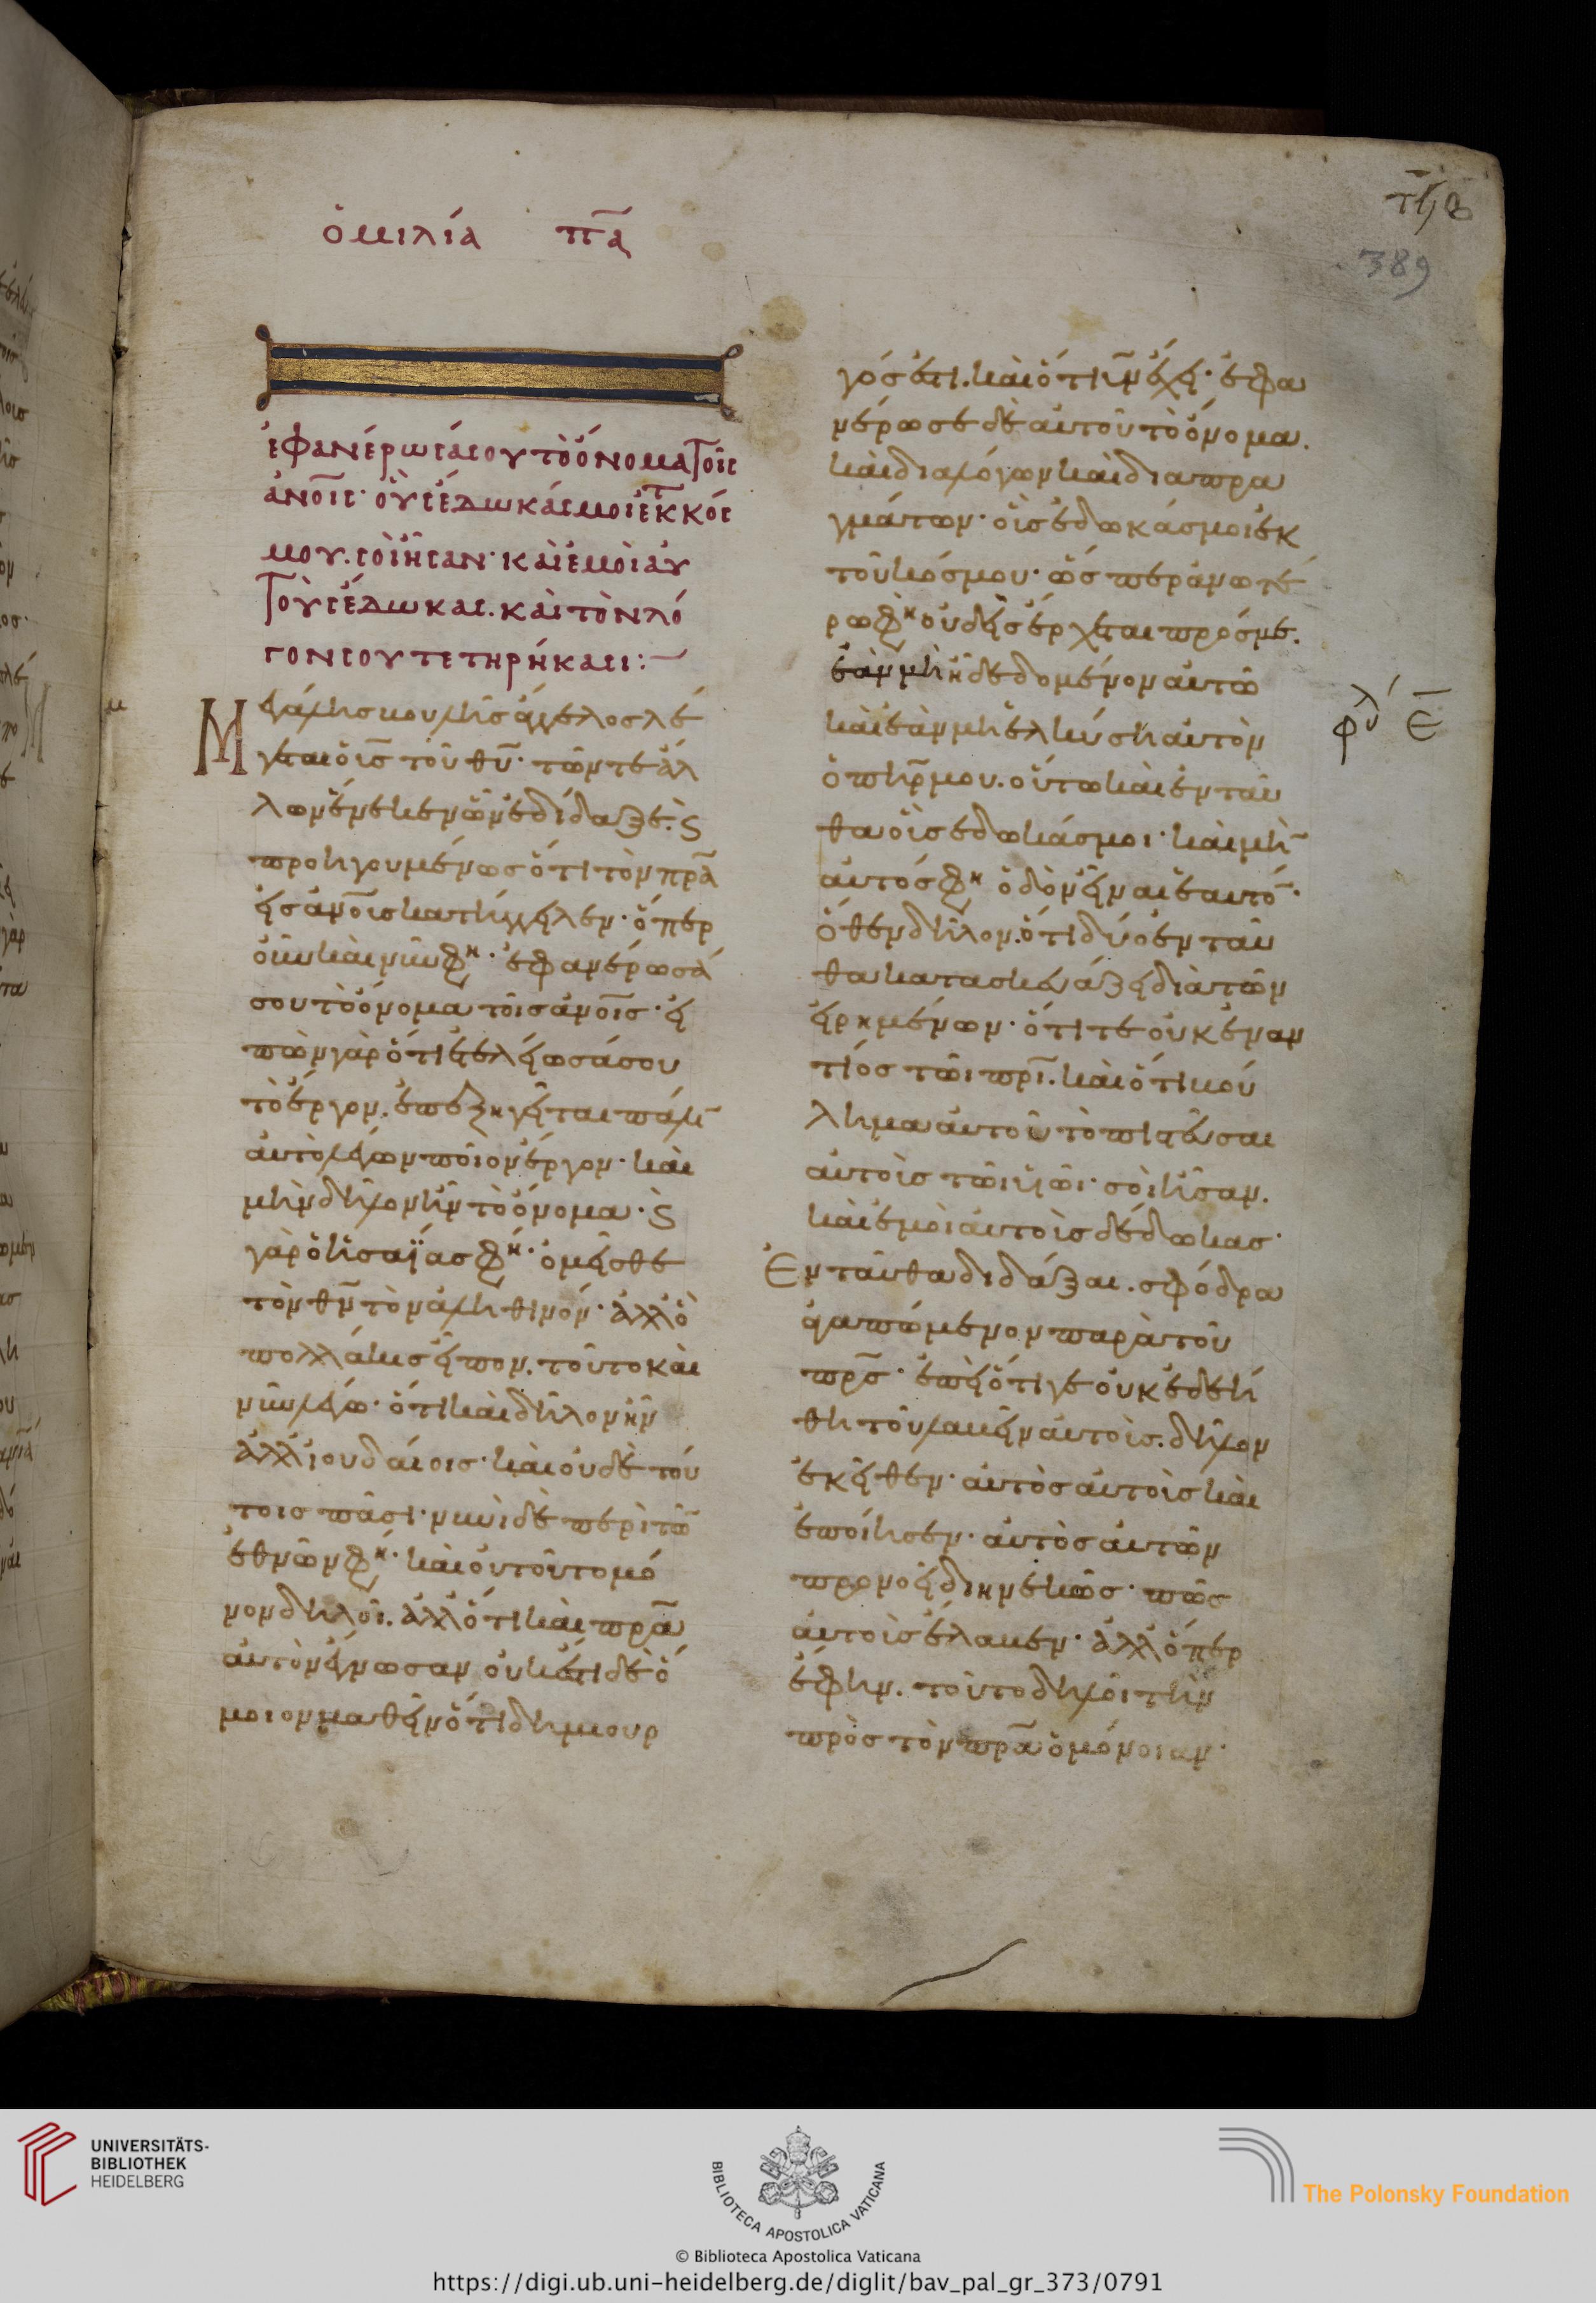 τϟθ
389
ὁμιλία π̅α
ἐφανέρωσάσου τὸ ὄνομα τοῖς
ἀν̅οις· οὓς ἔδωκάς μοι ἐκ τ κόσ
μου. σοὶ ἦσαν· καὶ ἐμοὶ αὐ
τοὺς ἔδωκας. καὶ τὸν λό
γον σου τετηρήκασι:—
Μεγάλης βουλῆς ἄγγελος λέ
γεται ὁ υ̅ς τοῦ θ̅υ· τῶν τε ἄλ
λων ἕνεκεν ὧν ἐδίδαξε· ϗ
προηγουμένως ὅτι τὸν π̅ρα
εἰς ἀν̅οις κατήγγειλεν· ὅπερ
οὖν καὶ νῦν φη· ἐφανέρωσά
σου τὸ ὄνομα τοῖς ἀν̅οις· εἰ
πὼν γὰρ ὅτι ἐτελείωσά σου
τὸ ἔργον. ἐπεξηγεῖται πάλι
αὐτὸ λέγων ποῖον ἔργον· καὶ
μὴν δῆλον ἦν τὸ ὄνομα· ϗ
γὰρ ὁ ἡσαΐας φη· ὀμεῖσθε
τὸν θ̅ν τὸν ἀληθινόν· ἀλλ ὃ
πολλάκις εἶπον. τοῦτο καὶ
νῦν λέγω· ὅτι καὶ δῆλον ἦν
ἀλλ ἰουδαίοις· καὶ οὐδὲ τού
τοις πᾶσι· νυνὶ δὲ περὶ τῶ
ἐθνῶν φη· καὶ οὐ τοῦτο μό
νον δηλοῖ. ἀλλ ὅτι καὶ π̅ρα
αὐτὸν ἔγνωσαν οὐκ ἔστι δὲ ὅ
μοιον μαθεῖν ὅτι δημιουρ
γός ἐστι. καὶ ὅτι υ̅ν ἔχει· ἐφα
νέρωσε δὲ αὐτοῦ τὸ ὄνομα.
καὶ διαλόγων καὶ διὰ πρα
γμάτων· οἷς ἔδωκάς μοι ἐκ
τοῦ κόσμου· ὥσπερ ἀνωτέ
ρω φη οὐδεὶς ἔρχεται πρός με.
ἐὰν μὴ ἦ δεδομένον αὐτῶ
καὶ ἐὰν μὴ ἑλκύση αὐτὸν
ὁ π̅ηρ μου. οὕτω καὶ ἐνταῦ
θα οἷς ἔδωκάς μοι· καὶ μὴ
αὐτός φη ὁδὸν εἶναι ἑαυτό·
ὅθεν δῆλον. ὅτι δύο ἐνταῦ
θα κατασκευάζει διὰ τῶν
εἰρημένων· ὅτι τε οὐκ ἐναν
τίος τῶι π̅ρι. καὶ ὅτι βού
λημα αὐτοῦ τὸ πιστεῦσαι
αὐτοῖς τῶι υ̅ιῶι· σοὶ ἦσαν.
καὶ ἐμοὶ αὐτοῖς δέδωκας·
Ἐνταῦθα διδάξαι. σφόδρα
ἀγαπώμενον παρὰ τοῦ
π̅ρς· ἐπεὶ ὅτι γε οὐκ ἐδεή
θη τοῦ λαβεῖν αὐτοῖς. δῆλον
ἐκεῖθεν· αὐτὸς αὐτοῖς καὶ
ἐποίησεν· αὐτὸς αὐτῶν
προνοεῖ διηνεκῶς· πῶς
αὐτοῖς ἔλαβεν· ἀλλ ὅπερ
ἔφην. τοῦτο δηλοῖ τὴν
πρὸς τὸν π̅ρα ὁμόνοιαν·
UNIVERSITÄTS-
BIBLIOTHEK
HEIDELBERG
BIBLIOTECA APOSTOLICA VATICANA
The Polonsky Foundation
© Biblioteca Apostolica Vaticana
https://digi.ub.uni-heidelberg.de/diglit/bav_pal_gr_373/0791